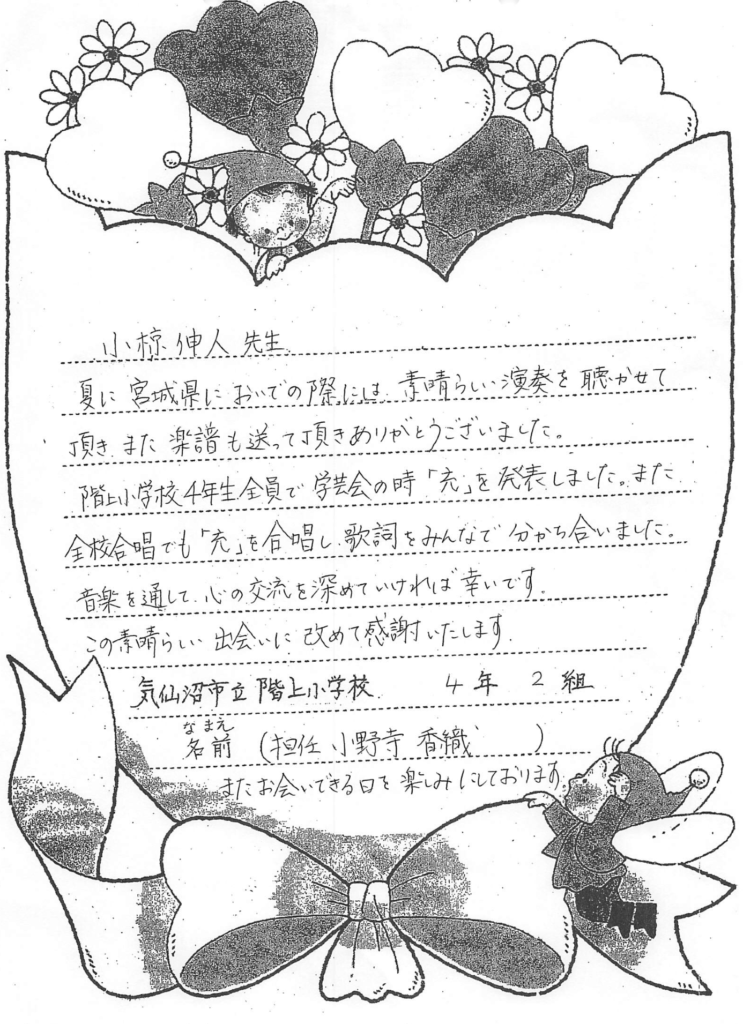 小椋伸人先生
夏に宮城県においでの際には、素晴らしい演奏を聴かせて
頂き、また楽譜も送って頂きありがとうございました。
階上小学校4年生全員で学芸会の時「充」を発表しました。また
全校合唱でも「充」を合唱し、歌詞をみんなで分かち合いました。
音楽を通して、心の交流を深めていければ幸いです。
この素晴らしい出会いに改めて感謝いたします。
気仙沼市立階上小学校 4年 2組
なまえ
名前 (担任 小野寺 香織 )
またお会いできる日を楽しみにしております